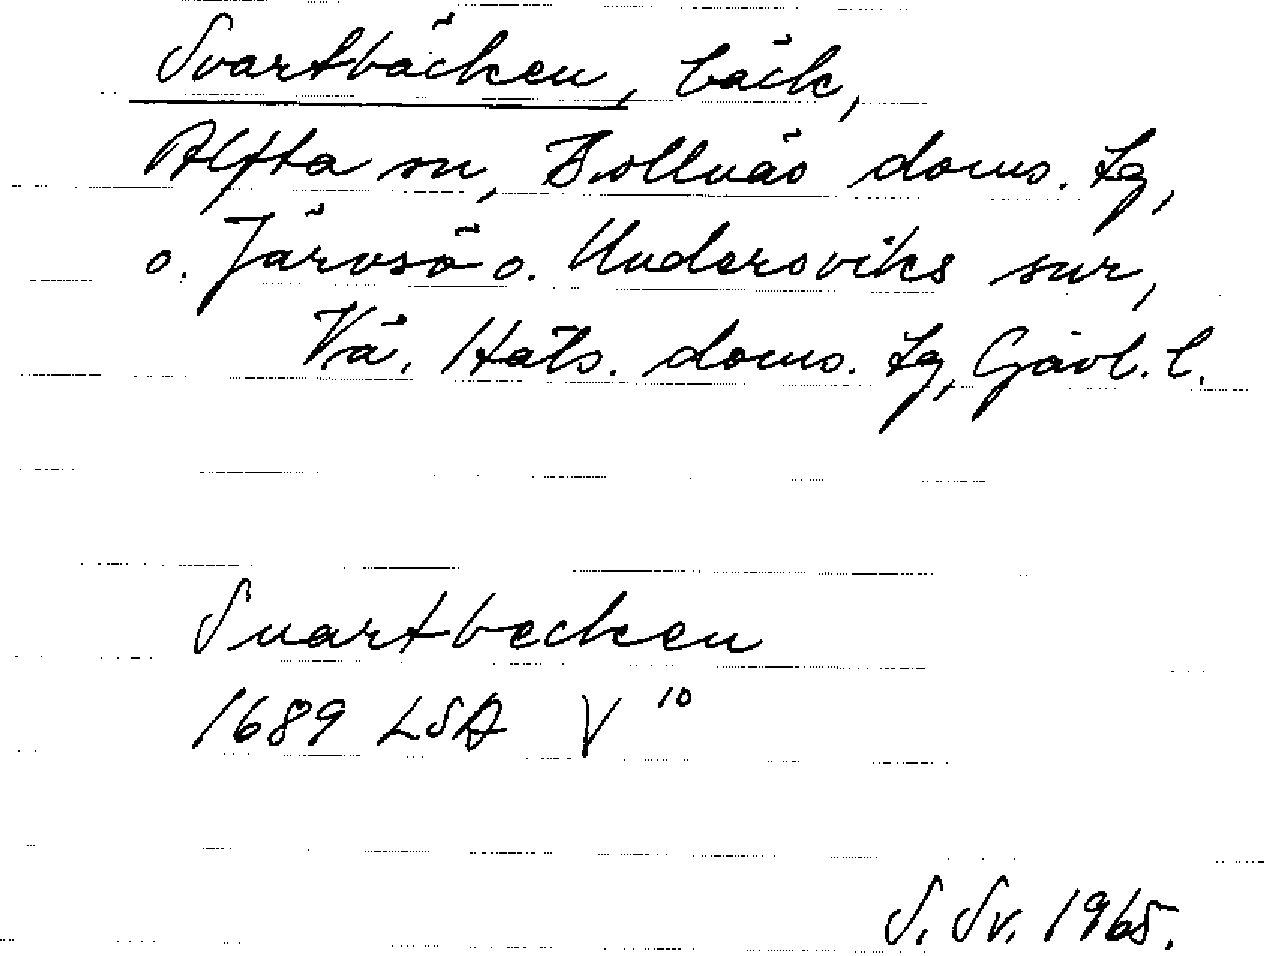 Svartbäcken, bäck,
Alfta sn, Bollnäs doms. Lg,
o. Järvsö o. Undersviks snr,
Vä. Häls. doms. Lg, Gävl. l.
Svartbecken
1689 LSA V 10
S. Sv. 1965.